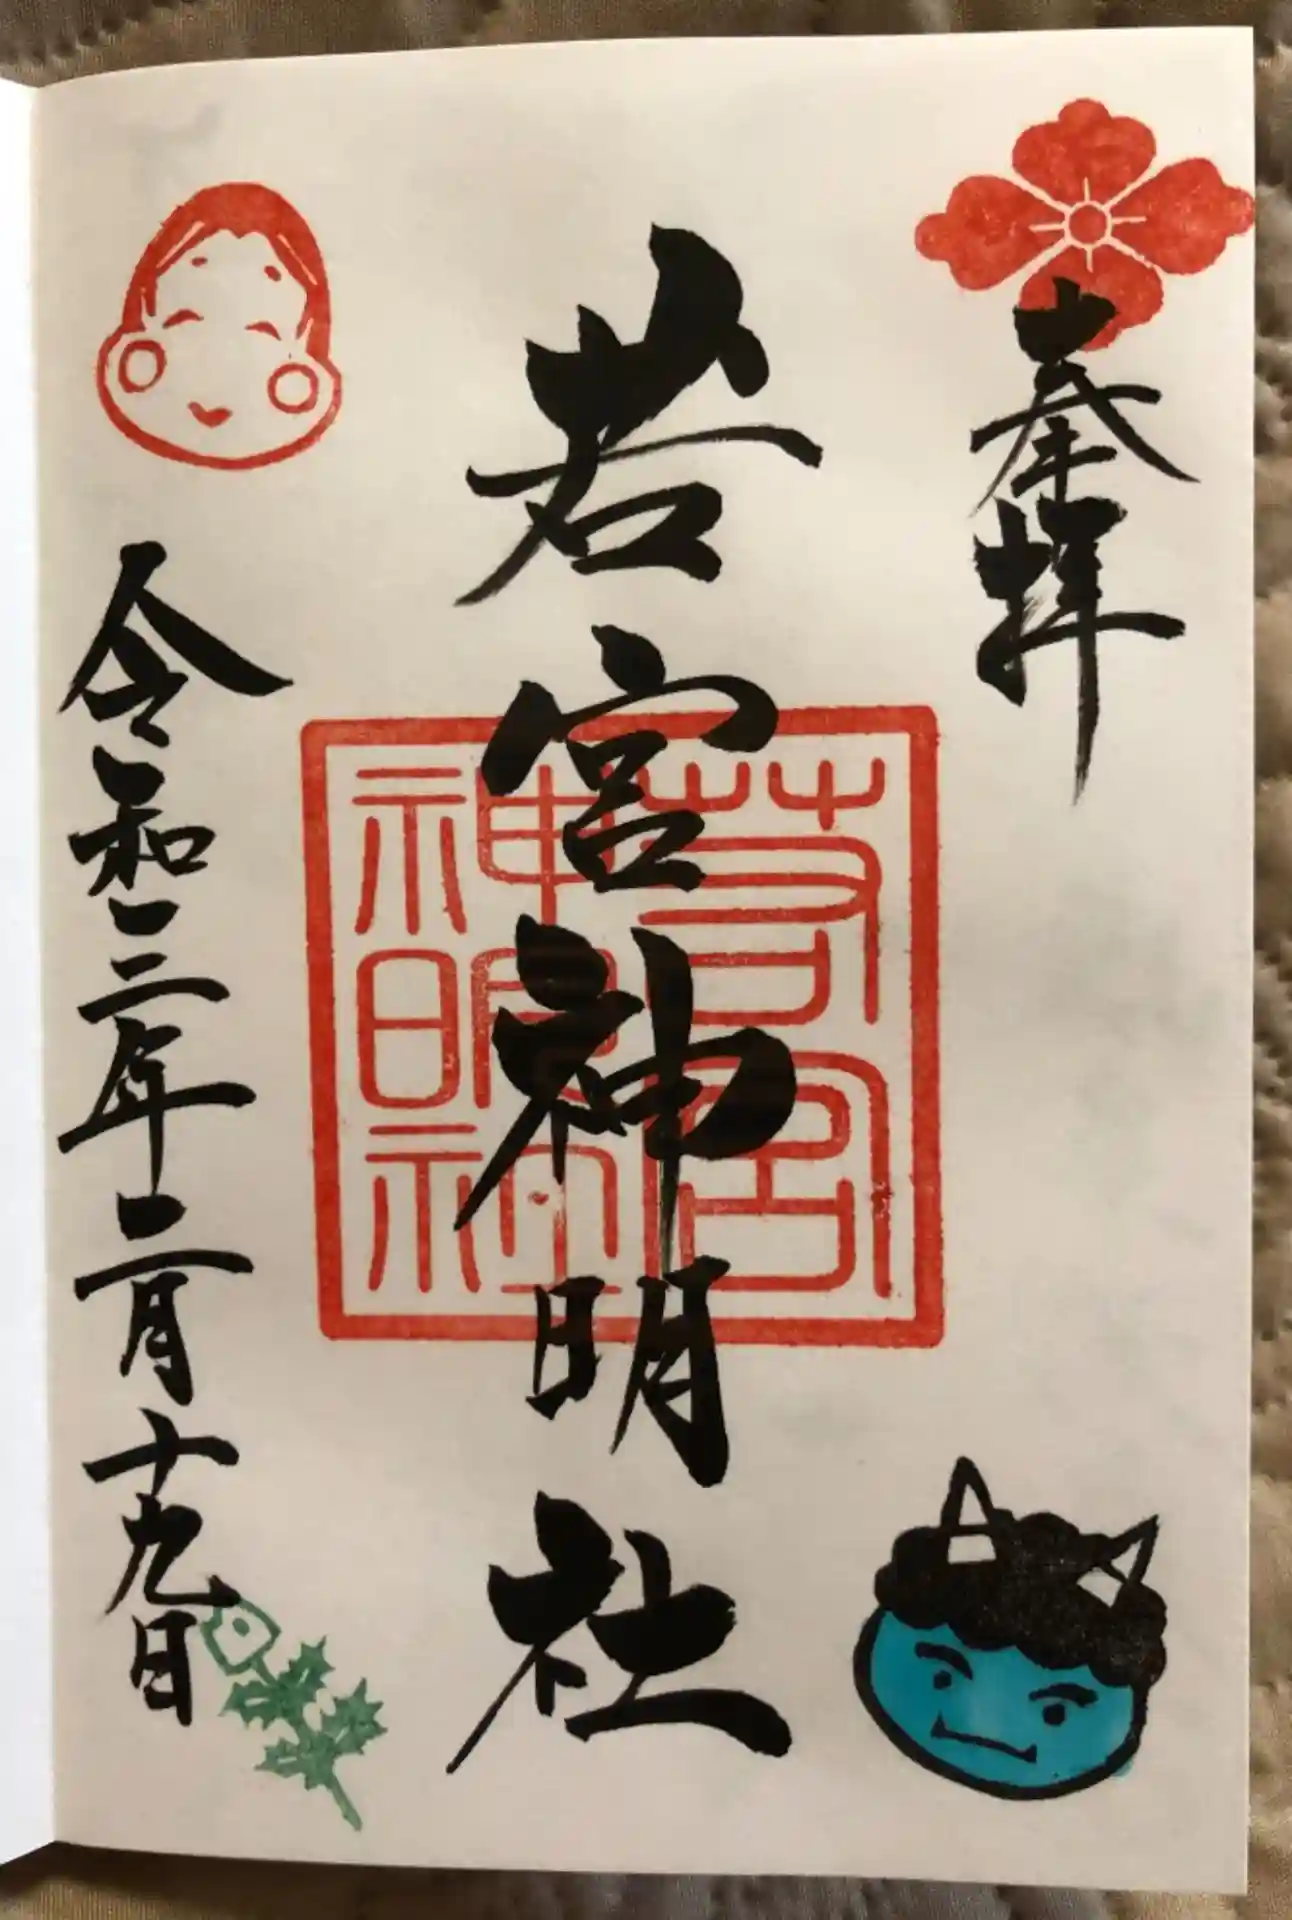 奉拝
若宮神明社
令和三年二月十九日
若宮
神明社